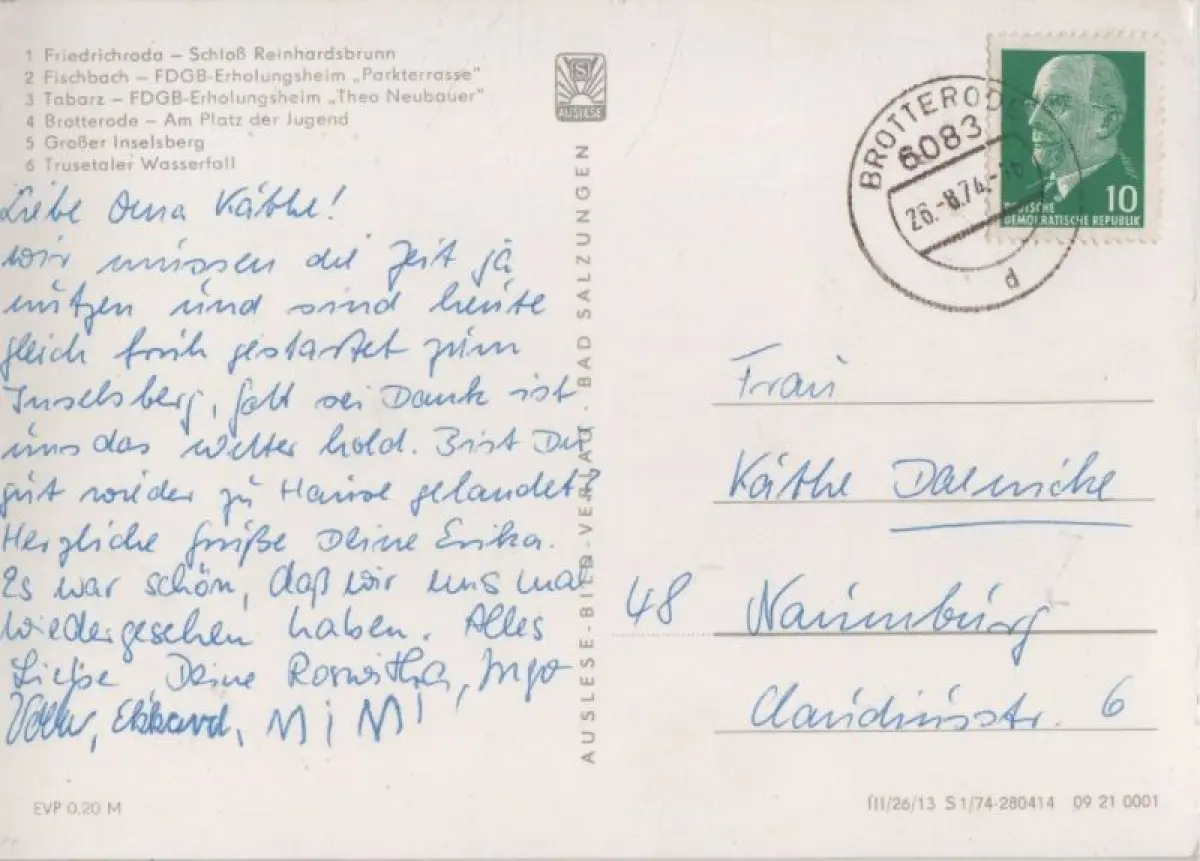 1 Friedrichroda – Schloß Reinhardsbrunn
2 Fischbach – FDGB-Erholungsheim „Parkterrasse"
3 Tabarz – FDGB-Erholungsheim „Theo Neubauer"
4 Brotterode – Am Platz der Jugend
5 Großer Inselsberg
6 Trusetaler Wasserfall
Liebe Oma Käthe!
wir müssen die Zeit ja
nützen und sind heute
gleich früh gestartet zum
Inselsberg, Gott sei Dank ist
uns das Wetter hold. Bist Du
gut wieder zu Hause gelandet?
Herzliche Grüße Deine Erika.
Es war schön, daß wir uns mal
wiedergesehen haben. Alles
Liebe Deine Roswitha, Ingo
Ekkard, MiMi
EVP 0,20 M
S
AUSLESE
AUSLESE-BILD-VERLAG · BAD SALZUNGEN
BROTTERODE
6083
26.-8.74.-
d
10
DEUTSCHE
DEMOKRATISCHE REPUBLIK
Frau
Käthe
48 Naumburg
Claudiusstr. 6
III/26/13 S 1/74-280414 09 21 0001